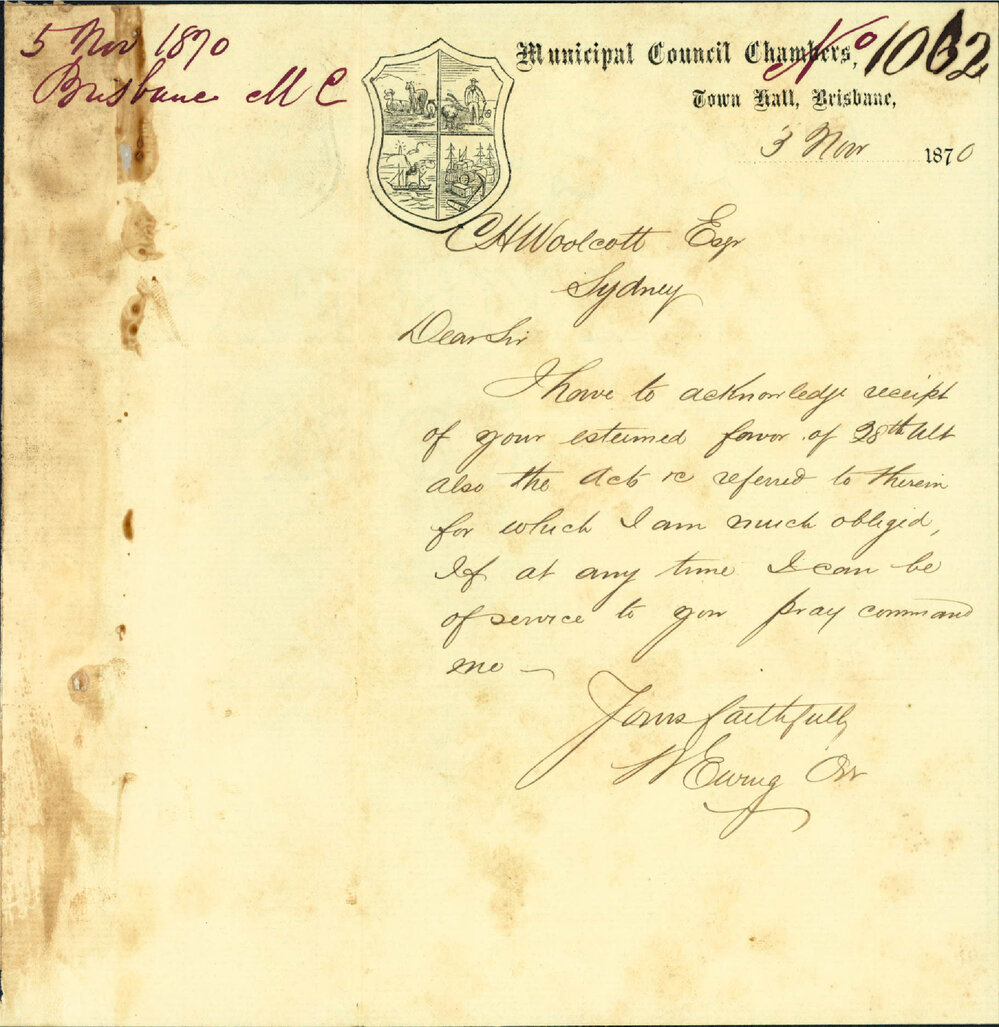 5 Nov 1870
Brisbane M C
No 1062
Municipal Council Chambers,
Town Hall, Brisbane,
3 Nov 1870
C H Woolcott Esqr
Sydney
Dear Sir
I have to acknowledge receipt
of your esteemed favor of 28th Ult
also the Acts &c referred to therein
for which I am much obliged,
If at any time I can be
of service to you pray command
me —
Yours faithfully
W Ewing Orr